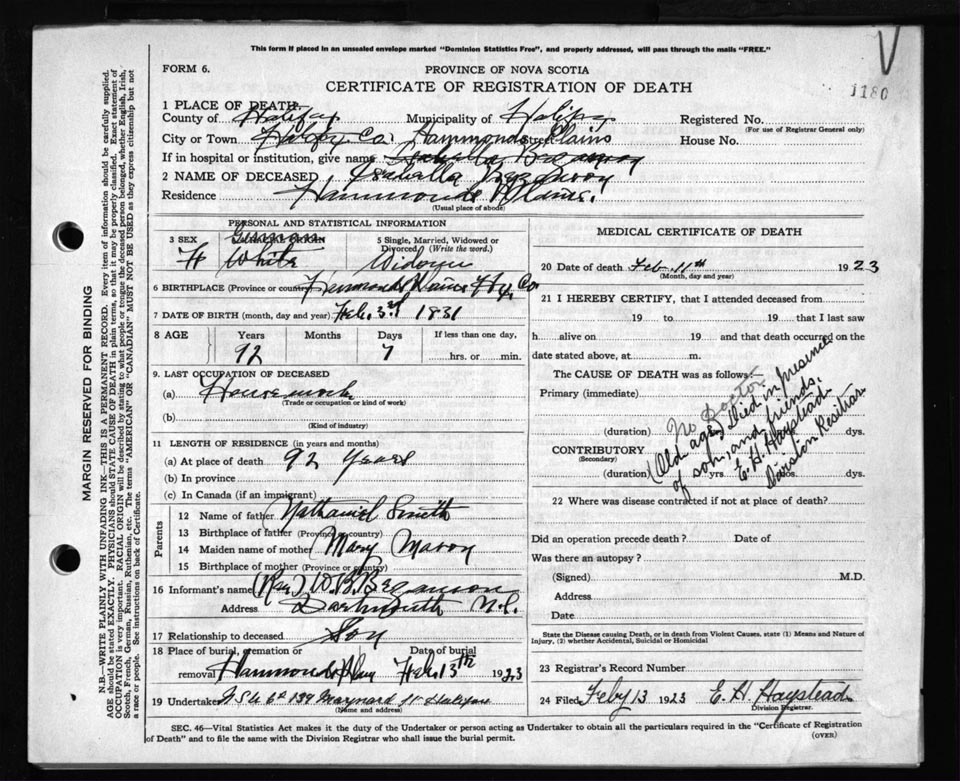 This form if placed in an unsealed envelope marked "Dominion Statistics Free", and properly addressed, will pass through the mails "FREE."
V
FORM 6.
PROVINCE OF NOVA SCOTIA
CERTIFICATE OF REGISTRATION OF DEATH
1180
1 PLACE OF DEATH.
County of Halifax Municipality of Halifax Registered No.
(For use of Registrar General only)
City or Town Hammonds Plains Street House No.
If in hospital or institution, give name
2 NAME OF DECEASED Isabella
Residence Hammonds Plains.
(Usual place of abode)
PERSONAL AND STATISTICAL INFORMATION
3 SEX German 5 Single, Married, Widowed or Divorced (Write the word.)
F White Widow
6 BIRTHPLACE (Province or country) Hammonds Plains Hfx. Co
7 DATE OF BIRTH (month, day and year) Feb. 3rd 1831
8 AGE Years Months Days If less than one day,
92 7 hrs. or min.
9. LAST OCCUPATION OF DECEASED
(a) House work
(Trade or occupation or kind of work)
(b)
(Kind of industry)
11 LENGTH OF RESIDENCE (in years and months)
(a) At place of death 92 Years
(b) In province
(c) In Canada (if an immigrant)
Parents
12 Name of father Nathaniel Smith
13 Birthplace of father (Province or country)
14 Maiden name of mother Mary
15 Birthplace of mother (Province or country)
16 Informant's name (Rev) W.B. Bezanson
Address Dartmouth N.S.
17 Relationship to deceased Son
18 Place of burial, cremation or removal Date of burial
Hammonds Plains Feb. 13th 1923
19 Undertaker 139 Maynard St Halifax
(Name and address)
MEDICAL CERTIFICATE OF DEATH
20 Date of death Feb 11th 1923
(Month, day and year)
21 I HEREBY CERTIFY, that I attended deceased from
19 to 19 that I last saw
h alive on 19 and that death occurred on the
date stated above, at m.
The CAUSE OF DEATH was as follows:—
Primary (immediate)
(duration) dys.
CONTRIBUTORY
(Secondary)
(duration) yrs. dys.
No Doctor
(Old age) Died in presence
of son, and friends.
E. H. Haystead
Division Registrar
22 Where was disease contracted if not at place of death?
Did an operation precede death? Date of
Was there an autopsy?
(Signed) M.D.
Address
Date
State the Disease causing Death, or in death from Violent Causes, state (1) Means and Nature of
Injury, (2) whether Accidental, Suicidal or Homicidal
23 Registrar's Record Number
24 Filed Feby 13 1923 E. H. Haystead
Division Registrar.
SEC. 46—Vital Statistics Act makes it the duty of the Undertaker or person acting as Undertaker to obtain all the particulars required in the "Certificate of Registration
of Death" and to file the same with the Division Registrar who shall issue the burial permit.
(OVER)
MARGIN RESERVED FOR BINDING
N.B.—WRITE PLAINLY WITH UNFADING INK—THIS IS A PERMANENT RECORD. Every item of information should be carefully supplied.
AGE should be stated EXACTLY. PHYSICIANS should STATE CAUSE OF DEATH in plain terms, so that it may be properly classified. Exact statement of
OCCUPATION is very important. RACIAL ORIGIN will be described by stating to what people or tongue the deceased person belonged, whether English, Irish,
Scotch, French, German, Russian, Ruthenian, etc. The terms "AMERICAN" or "CANADIAN" MUST NOT BE USED as they express citizenship but not
a race or people. See instructions on back of Certificate.